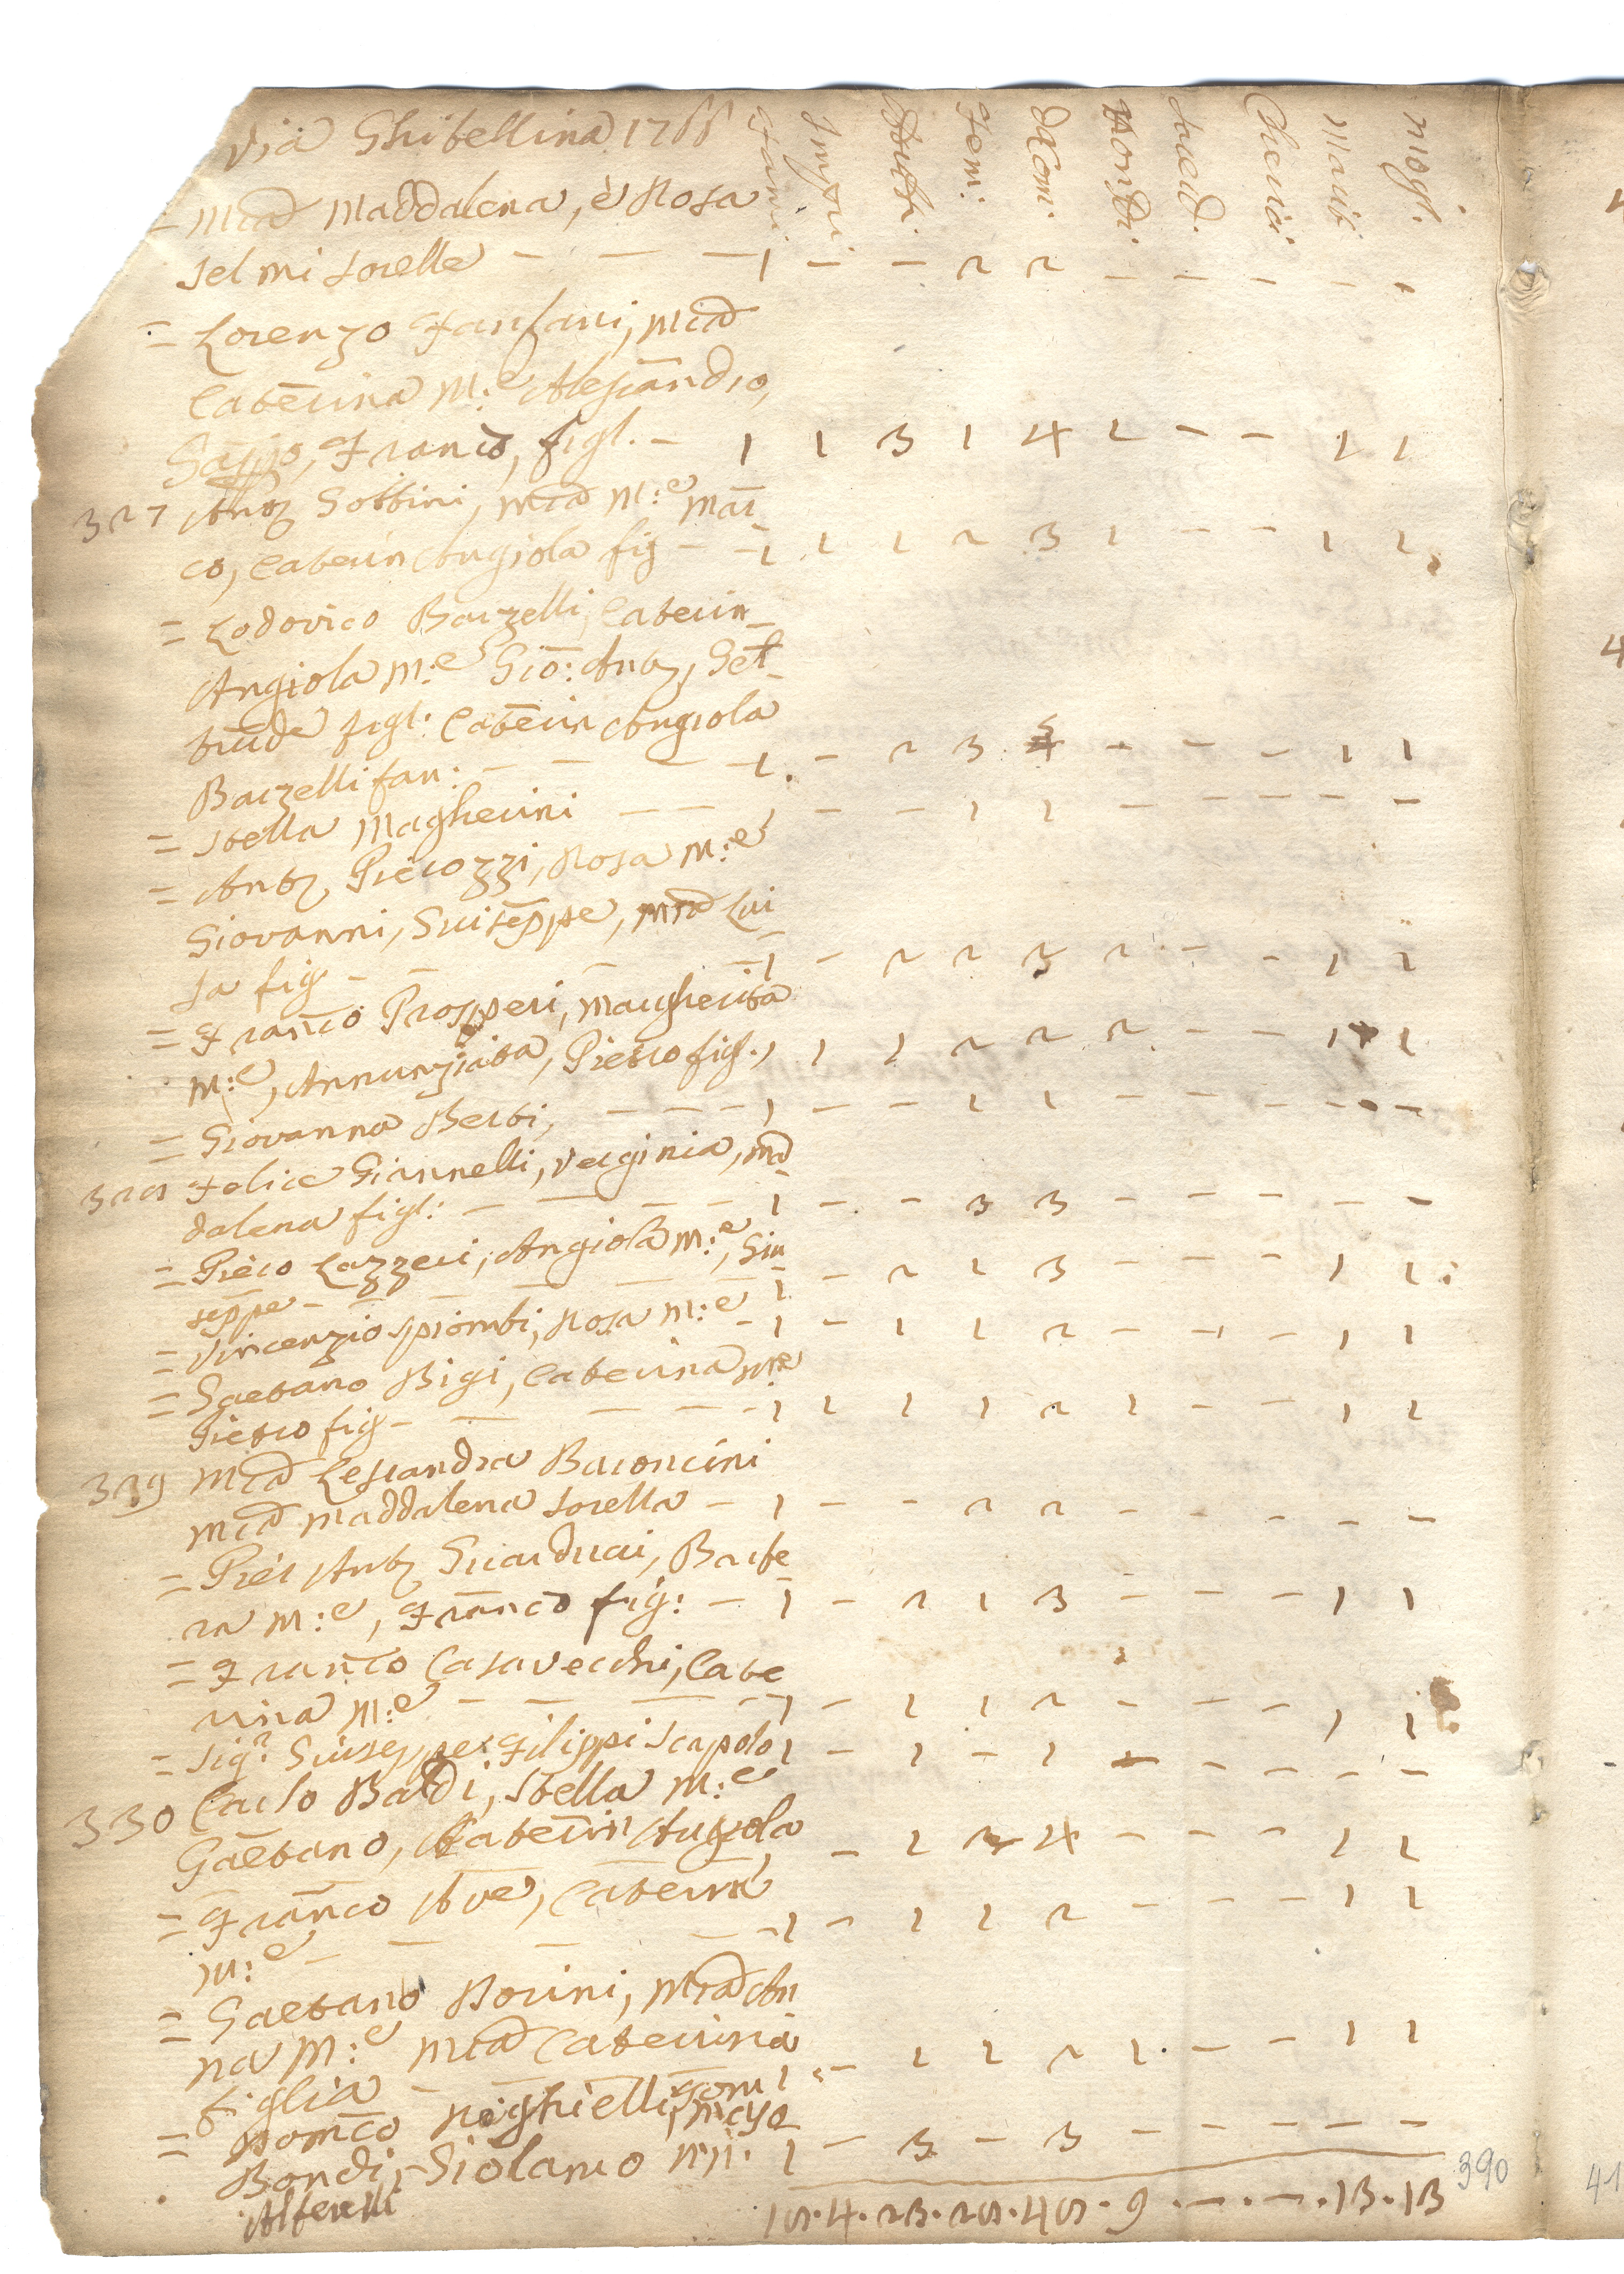 Via Ghibellina 1766 Fami: Impu: Masti: Fem: Com: Non Com: Sacerd. Cherici Mariti Mogl.
= M:a Maddalena, è Rosa
Selmi Sorelle - - - 1 - - 2 2 - - - - -
= Lorenzo Fanfani, M:a
Caterina M:e Alesandro,
Gaspo, Franco, figl. - 1 1 3 1 4 1 - - 1 1
327 Anto Gobbini, M:a M:e Mar
co, Caterin Angiola fig - - 1 1 1 2 3 1 - - 1 1
= Lodovico Barzelli, Caterin
Angiola M:e Gio: Anto, Gel
trude figl: Caterin Angiola
Barzelli fan: - - - 1 - 2 3 5 - - - 1 1
= Stella Magherini - - 1 - - 1 1 - - - - -
= Anto Pierozzi, Rosa M:e
Giovanni, Giuseppe, M:a Lui
sa fig - - - - 1 - 2 2 3 2 - - 1 1
= Franco Prosperi, Margherita
M:e, Annunziata, Pietro figl. 1 1 1 2 2 2 - - 1 1
= Giovanna Berti, - - - 1 - - 1 1 - - - - -
328 Felice Giannelli, Verginia, Ma
dalena figl: - - - - 1 - - 3 3 - - - - -
= Piero Lazzeri, Angiola M:e, Giu
seppe - - - - - 1 - 2 1 3 - - - 1 1
= Vincenzio Piombi, Rosa M:e - 1 - 1 1 2 - - - 1 1
= Gaetano Bigi, Caterina M:e
Pietro fig - - - - - 1 1 1 1 2 1 - - 1 1
329 M:a Lesandra Baroncini
M:a Maddalena Sorella - 1 - - 2 2 - - - - -
= Pier Anto Guarducci, Barbe
ra M:e, Franco fig: - 1 - 2 1 3 - - - 1 1
= Franco Casavecchi, Cate
rina M:e - - - - 1 - 1 1 2 - - - 1 1
= Sig:r Giuseppe Filippi Scapolo 1 - 1 - 1 - - - - -
330 Carlo Baldi, Stella M:e
Gaetano, Caterin Angiola - 1 2 4 - - - 1 1
= Franco Ave, Caterina
M:e - - - - - 1 - 1 1 2 - - - 1 1
= Gaetano Borini, M:a An
na M:e M:a Caterina
figlia - - - 1 - 1 1 2 1 - - 1 1
= Domco Righielli, Tom
maso
Bondi, Giolamo 1 - 3 - 3 - - - - -
Alferelli
18 . 4 . 23 . 28 . 48 . 9 . - . - . 13 . 13
390
41